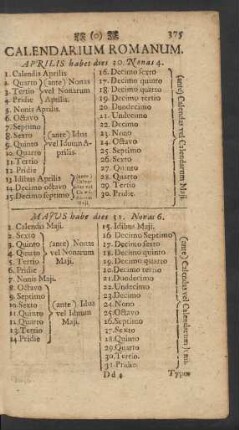 (o) 375
CALENDARIUM ROMANUM.
APRILIS habet dies 30. Nonas 4.
1. Calendis Aprilis
2. Quarto
3. Tertio
4. Pridie
(ante) Nonas
vel Nonarum
Aprilis.
5. Nonis Aprilis.
6. Octavo
7. Septimo
8. Sexto
9. Quinto
10. Quarto
11. Tertio
12. Pridie
(ante) Idus
vel Iduum A-
prilis.
13. Idibus Aprilis
14. Decimo octavo
15. Decimo septimo
16. Decimo sexto
17. Decimo quinto
18. Decimo quarto
19. Decimo tertio
20. Duodecimo
21. Undecimo
22. Decimo
23. Nono
24. Octavo
25. Septimo
26. Sexto
27. Quinto
28. Quarto
29. Tertio
30. Pridie
(ante) Calendas vel Calendarum Maji.
MAJUS habet dies 31. Nonas 6.
1. Calendis Maji.
2. Sexto
3. Quinto
4. Quarto
5. Tertio
6. Pridie
(ante) Nonas
vel Nonarum
Maji.
7. Nonis Maji.
8. Octavo
9. Septimo
10. Sexto
11. Quinto
12. Quarto
13. Tertio
14. Pridie
(ante) Idus
vel Iduum
Maji.
15. Idibus Maji.
16 Decimo Septimo
17. Decimo sexto
18. Decimo quinto
19. Decimo quarto
20. Decimo tertio
21. Duodecimo
22. Undecimo
23. Decimo
24. Nono
25. Octavo
26. Septimo
27. Sexto
28. Quinto
29. Quarto
30. Tertio.
31. Pridie
(ante) Calendas vel Calendarum Junii.
Dd 4